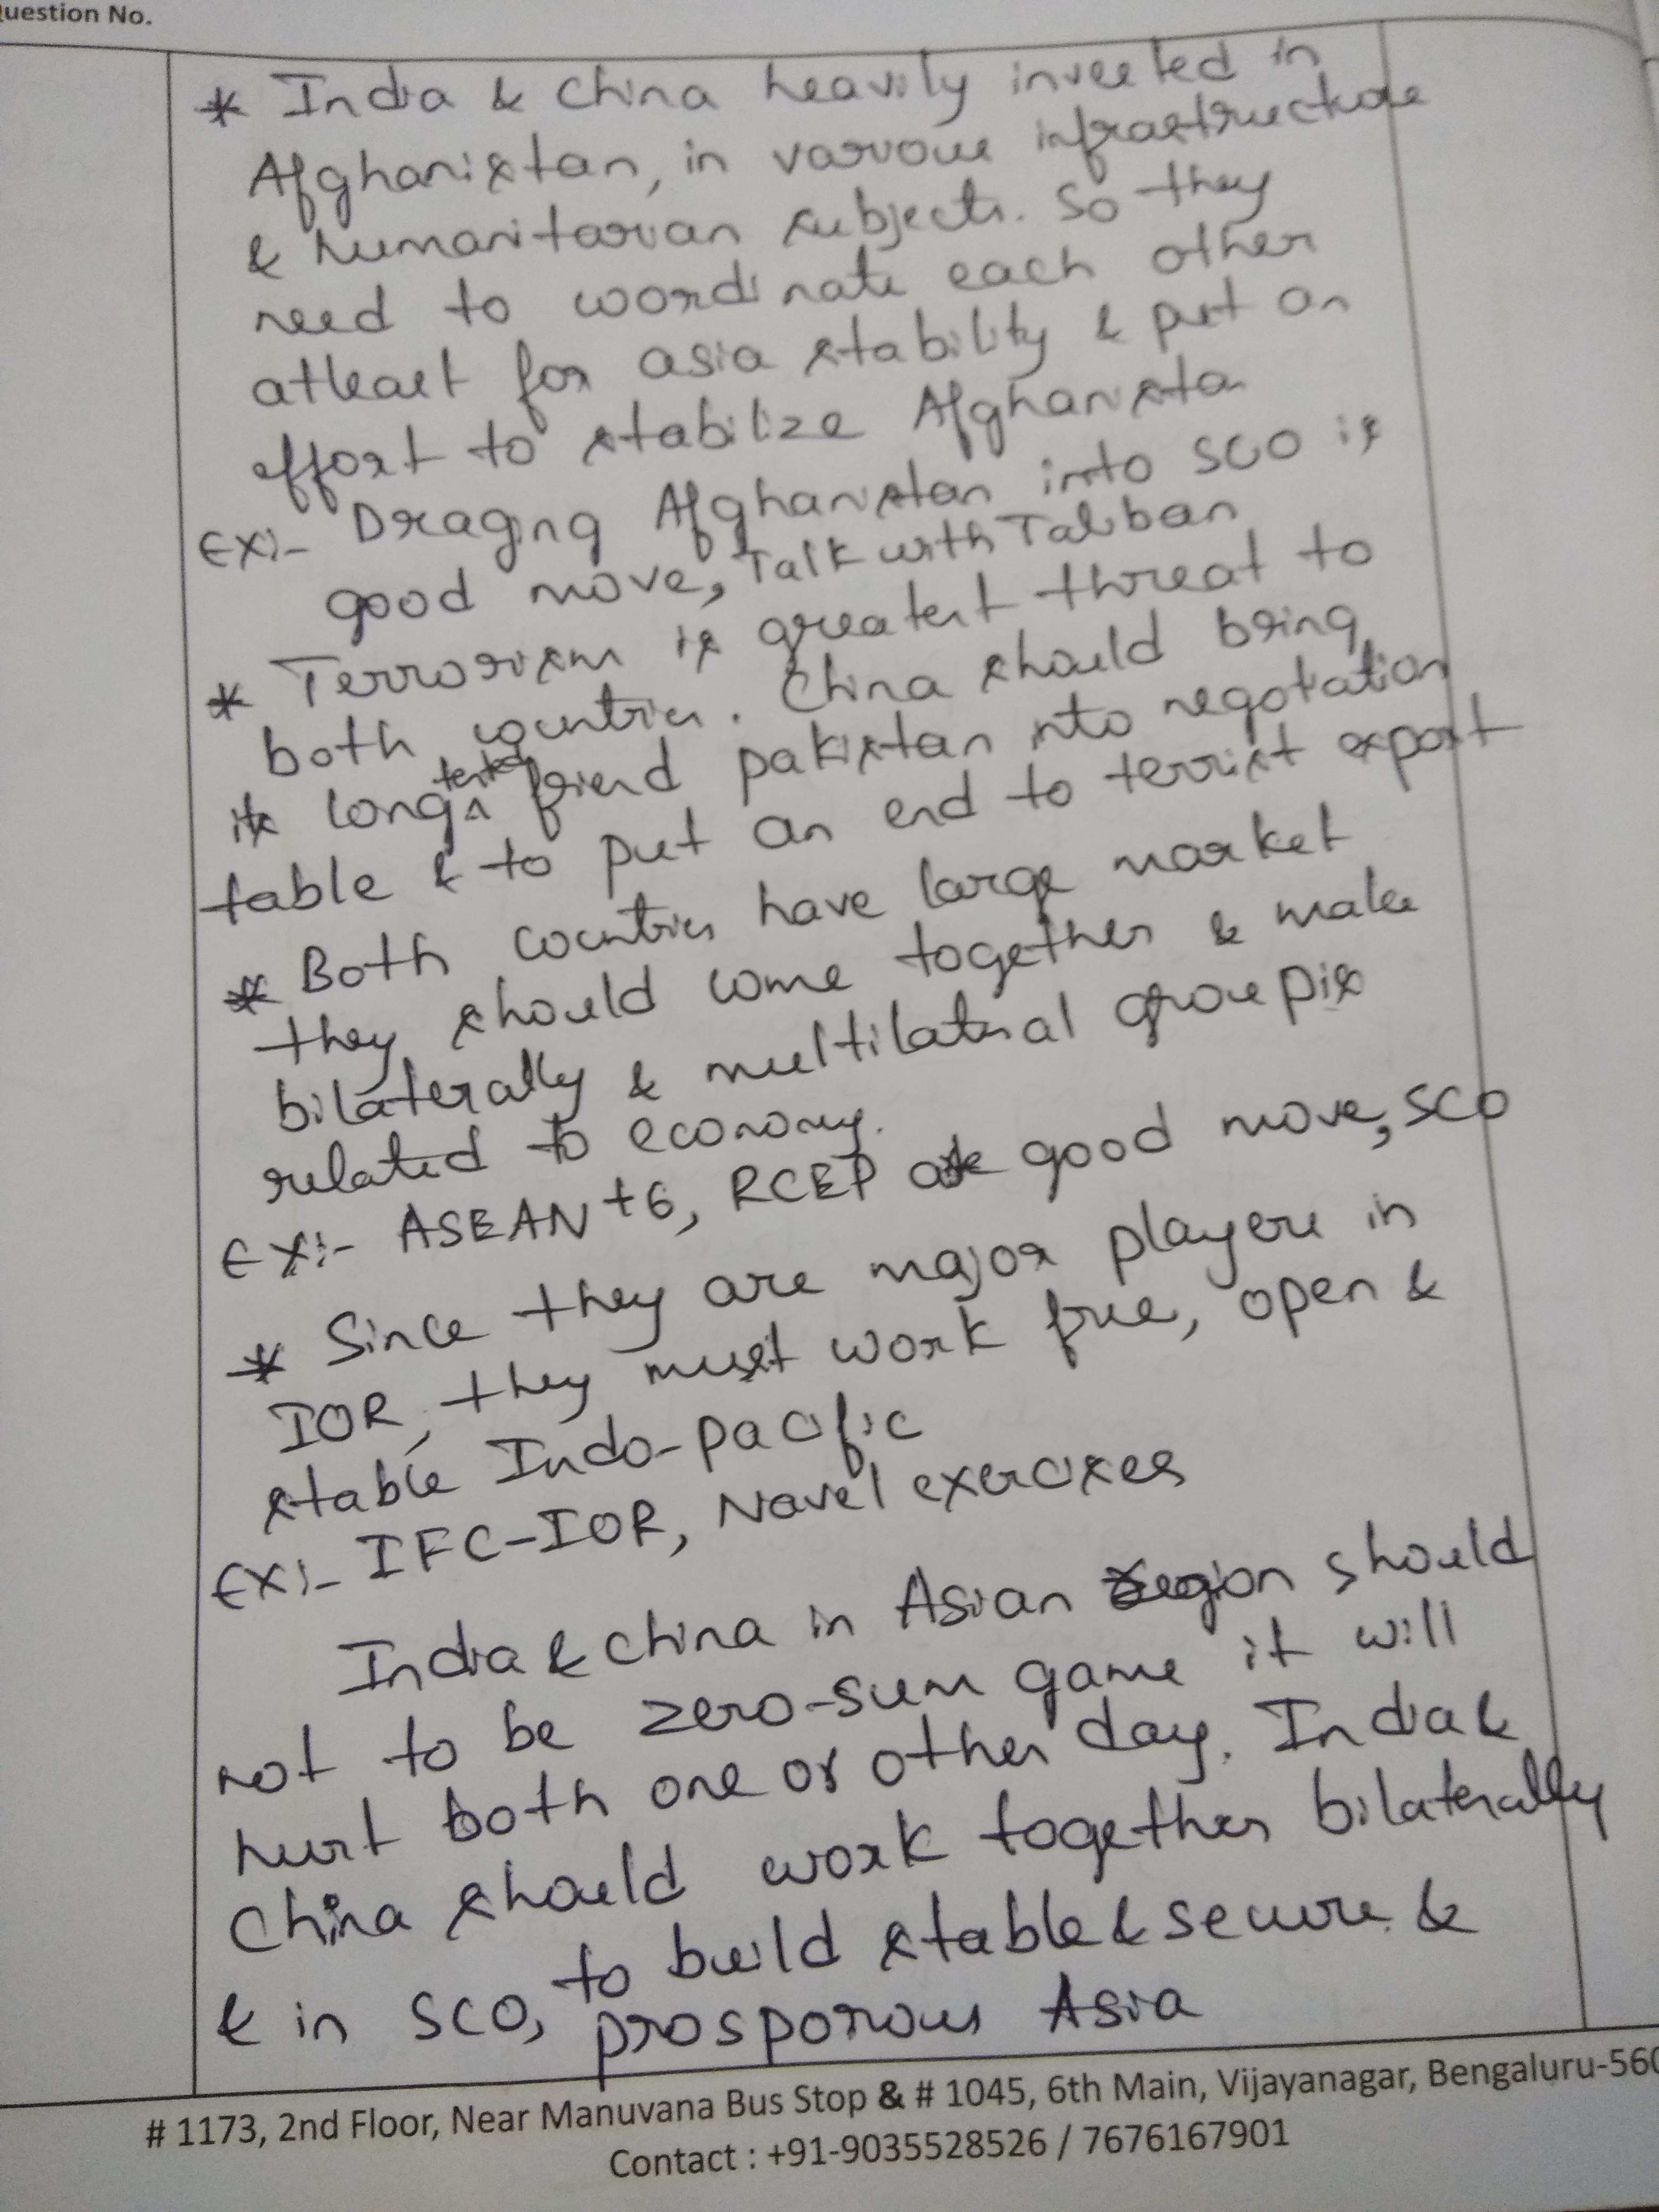 Question No.
* India & China heavily invested in
Afghanistan, in various infrastructure
& humanitarian subjects. So they
need to coordinate each other
atleast for asia stability & put an
effort to stabilize Afghanista
Ex:- Draging Afghanistan into SCO is
good move, Talk with Taliban
* Terrorism is greatest threat to
both countries. China should bring
its long tested friend pakistan into negotiation
table & to put an end to terrist export
* Both countries have large market
they should come together & make
bilaterally & multilateral groupis
related to economy.
Ex:- ASEAN+6, RCEP are good move, SCO
* Since they are major players in
IOR, they must work free, open &
stable Indo-pacific
Ex:- IFC-IOR, Navel exercises
India & china in Asian region should
not to be zero-sum game it will
hurt both one or other day. India &
China should work together bilaterally
& in SCO, to build stable & secure &
prosporous Asia
# 1173, 2nd Floor, Near Manuvana Bus Stop & # 1045, 6th Main, Vijayanagar, Bengaluru-560
Contact : +91-9035528526 / 7676167901